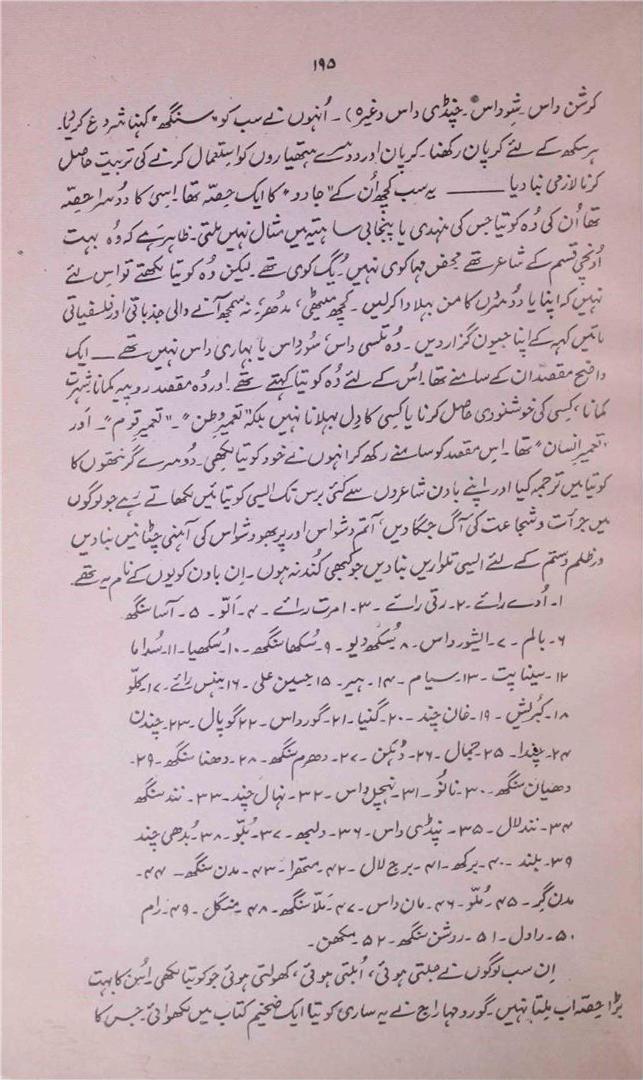 ۱۹۵
کرشن داس ۔ شوداس ۔ چنڈی داس وغیرہ) ۔ اُنہوں نے سب کو "سنگھ" کہنا شروع کر لیا۔
ہر سکھ کے لئے کرپان رکھنا۔ کرپان اور دوسرے ہتھیاروں کو استعمال کرنے کی تربیت حاصل
کرنا لازمی بنا دیا ——— یہ سب کچھ اُن کے "جادو" کا ایک حصّہ تھا۔ اسی کا دوسرا حصّہ
تھا اُن کی وہ کویتا جس کی ہندی یا پنجابی ساہتیہ میں مثال نہیں ملتی۔ ظاہر ہے کہ وہ بہت
اُونچی قسم کے شاعر تھے محض مہاکوی نہیں۔ یُگ کوی تھے۔ لیکن وہ کویتا لکھتے تو اس لئے
نہیں کہ اپنا یا دوسروں کا من بہلاوا کرلیں۔ کچھ میٹھی، مدھر، نہ سمجھ آنے والی جذباتی اور فلسفیاتی
باتیں کہہ کے اپنا جیون گزار دیں۔ وہ تلسی داس، سُورداس یا بہاری داس نہیں تھے — ایک
واضح مقصد ان کے سامنے تھا۔ اُس کے لئے وہ کویتا کہتے تھے۔ اور وہ مقصد روپیہ کمانا، شہرت
کمانا، کسی کی خوشنودی حاصل کرنا یا کسی کا دِل بہلانا نہیں بلکہ "تعمیرِ وطن"۔ "تعمیرِ قوم"۔ اور
"تعمیرِ انسان" تھا۔ اس مقصد کو سامنے رکھ کر انہوں نے خود کویتا لکھی۔ دوسرے گرنتھوں کا
کویتا میں ترجمہ کیا اور اپنے باون شاعروں سے کئی برس تک ایسی کویتائیں لکھاتے رہے جو لوگوں
میں جرأت و شجاعت کی آگ جگا دیں، آتم وشواس اور پربھو وشواس کی آہنی چٹانیں بنا دیں
ور ظلم و ستم کے لئے ایسی تلواریں بنا دیں جو کبھی کُند نہ ہوں۔ اِن باون کویوں کے نام یہ تھے۔
۱۔ اُدے رائے ۔ ۲۔ رتی رائے ۔ ۳۔ امرت رائے ۔ ۴۔ الّو ۔ ۵۔ آسا سنگھ
۶۔ بالم ۔ ۷۔ ایشور داس ۔ ۸۔ سُکھ دیو ۔ ۹۔ سُکھا سنگھ ۔ ۱۰۔ سُکھیا ۔ ۱۱۔ سُداما
۱۲۔ سیناپت ۔ ۱۳۔ سیام ۔ ۱۴۔ ہیر ۔ ۱۵۔ حسین علی ۔ ۱۶۔ ہنس رائے ۔ ۱۷۔ کلّو
۱۸۔ کبریش ۔ ۱۹۔ خان چند ۔ ۲۰۔ گنیا ۔ ۲۱۔ گورداس ۔ ۲۲۔ گوپال ۔ ۲۳۔ چندن
۲۴۔ چندا ۔ ۲۵۔ جمال ۔ ۲۶۔ ۔ ۲۷۔ دھرم سنگھ ۔ ۲۸۔ دھنا سنگھ ۔ ۲۹۔
دھیان سنگھ ۔ ۳۰۔ نانُو ۔ ۳۱۔ نہچل داس ۔ ۳۲۔ نہال چند ۔ ۳۳۔ نند سنگھ
۳۴۔ نند لال ۔ ۳۵۔ پنڈی داس ۔ ۳۶۔ ولبھ ۔ ۳۷۔ بُلّو ۔ ۳۸۔ بُدھی چند
۳۹۔ بلند ۔ ۴۰۔ برکھ ۔ ۴۱۔ برج لال ۔ ۴۲۔ متھرا ۔ ۴۳۔ مدن سنگھ ۔ ۴۴۔
مدن گر ۔ ۴۵۔ مُلّو ۔ ۴۶۔ مان داس ۔ ۴۷۔ مَلّا سنگھ ۔ ۴۸۔ منگل ۔ ۴۹۔ رام
۵۰۔ راول ۔ ۵۱۔ روشن سنگھ ۔ ۵۲۔ مکھن ۔
اِن سب لوگوں نے جلتی ہوئی، اُبلتی ہوئی، کھولتی ہوئی جو کویتا لکھی۔ اُس کا بہت
بڑا حصّہ اب ملتا نہیں۔ گورو مہاراج نے یہ ساری کویتا ایک ضخیم کتاب میں لکھوائی۔ جس کا